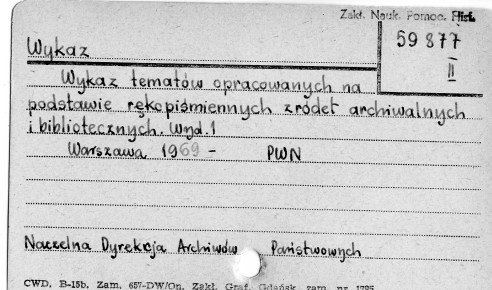 Zakł. Nauk. Pomoc. Hist.
59 877
II
Wykaz
Wykaz tematów opracowanych na
podstawie rękopiśmiennych źródeł archiwalnych
i bibliotecznych. Wyd. 1
Warszawa 1969 - PWN
Naczelna Dyrekcja Archiwów Państwowych
CWD, B-15b, Zam. 657-DW/On, Zakł. Graf. Gdańsk, zam. nr 1795